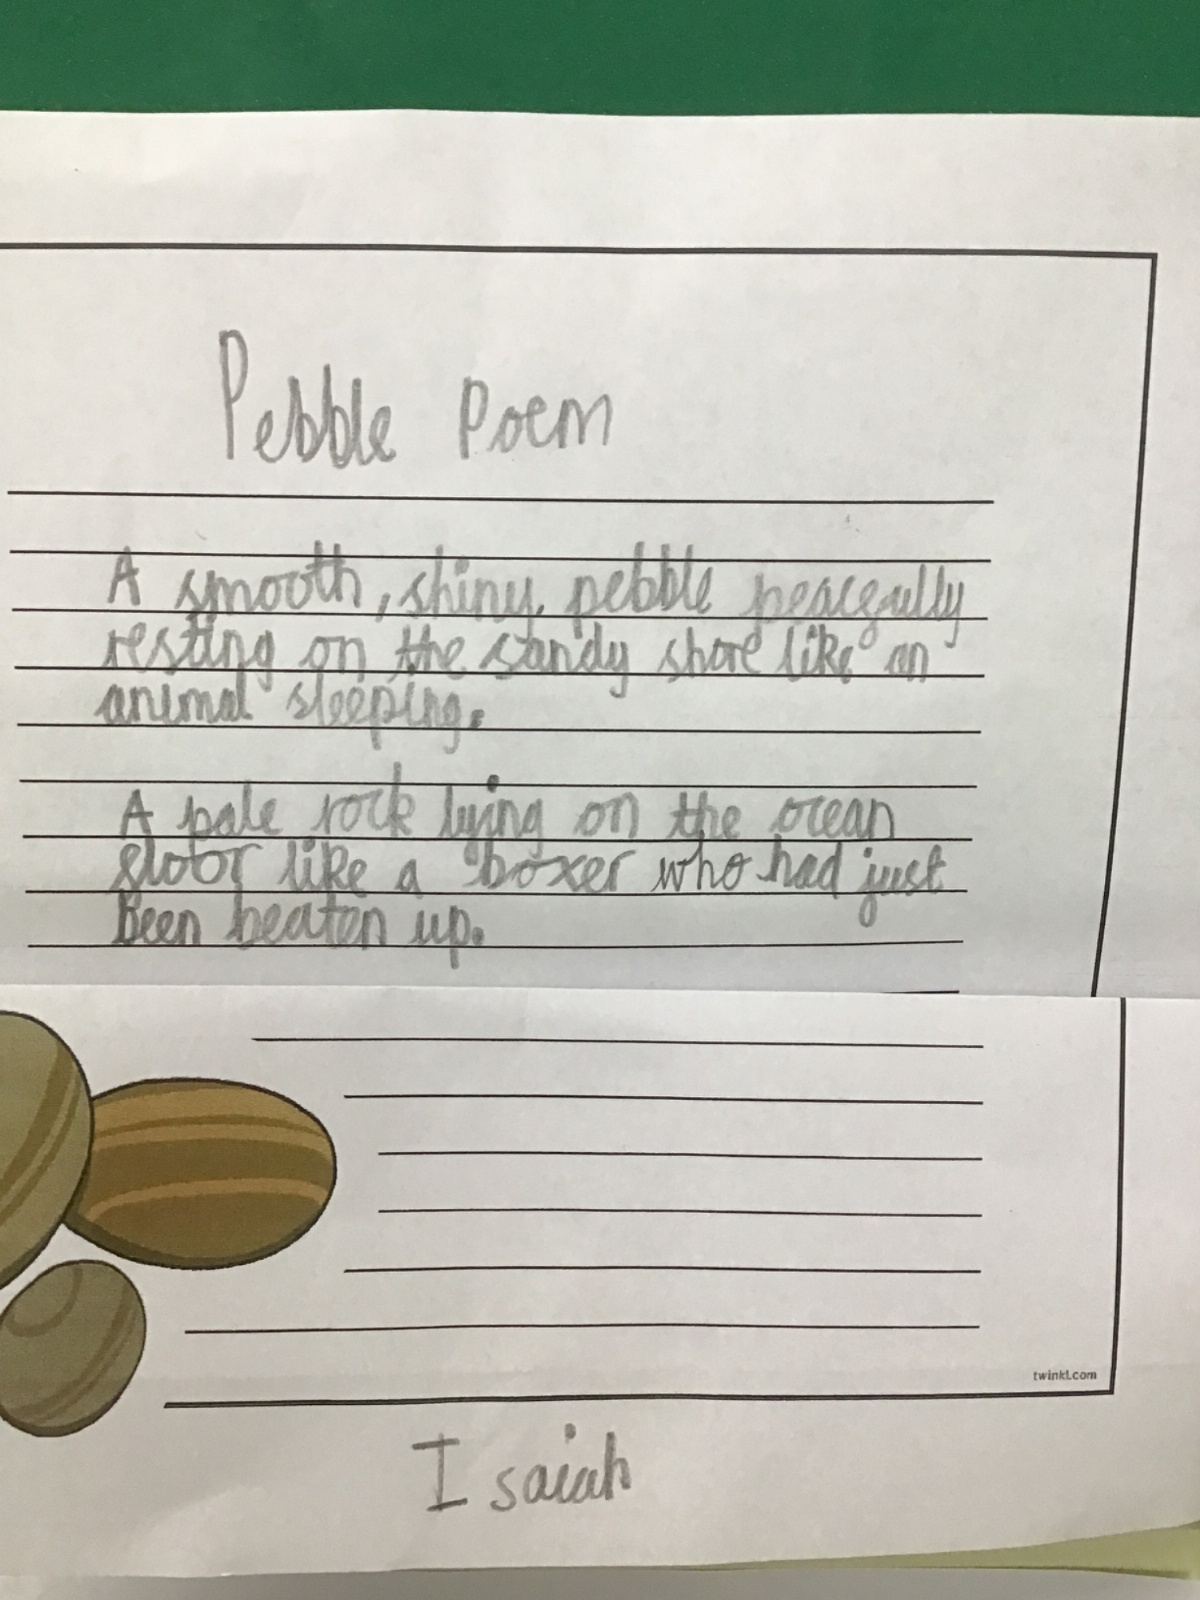 Pebble Poem
A smooth, shiny, pebble peacefully
resting on the sandy shore like an
animal sleeping.
A pale rock lying on the ocean
floor like a boxer who had just
been beaten up.
twinkl.com
Isaiah